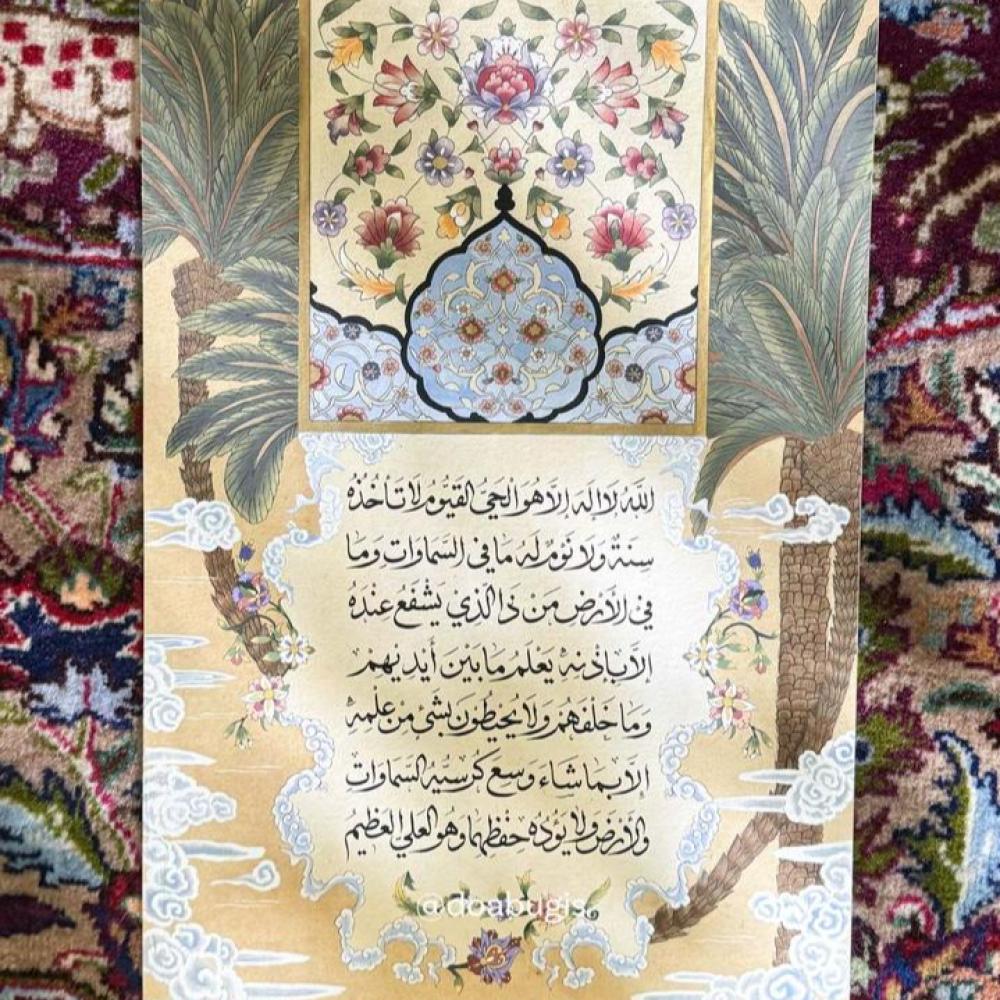 اللهُ لَا إِلَه إِلَّا هُوَ الْحَيُّ القَيُّومُ لَا تَأْخُذُهُ
سِنَةٌ وَلَا نَوْمٌ لَهُ مَا فِي السَّمَاوَاتِ وَمَا
فِي الْأَرْضِ مَنْ ذَا الَّذِي يَشْفَعُ عِنْدَهُ
إِلَّا بِإِذْنِهِ يَعْلَمُ مَا بَيْنَ أَيْدِيهِمْ
وَمَا خَلْفَهُمْ وَلَا يُحِيطُونَ بِشَيْءٍ مِنْ عِلْمِهِ
إِلَّا بِمَا شَاءَ وَسِعَ كُرْسِيُّهُ السَّمَاوَاتِ
وَالْأَرْضَ وَلَا يَؤُدُهُ حِفْظُهُمَا وَهُوَ الْعَلِيُّ الْعَظِيمُ
@doabugis